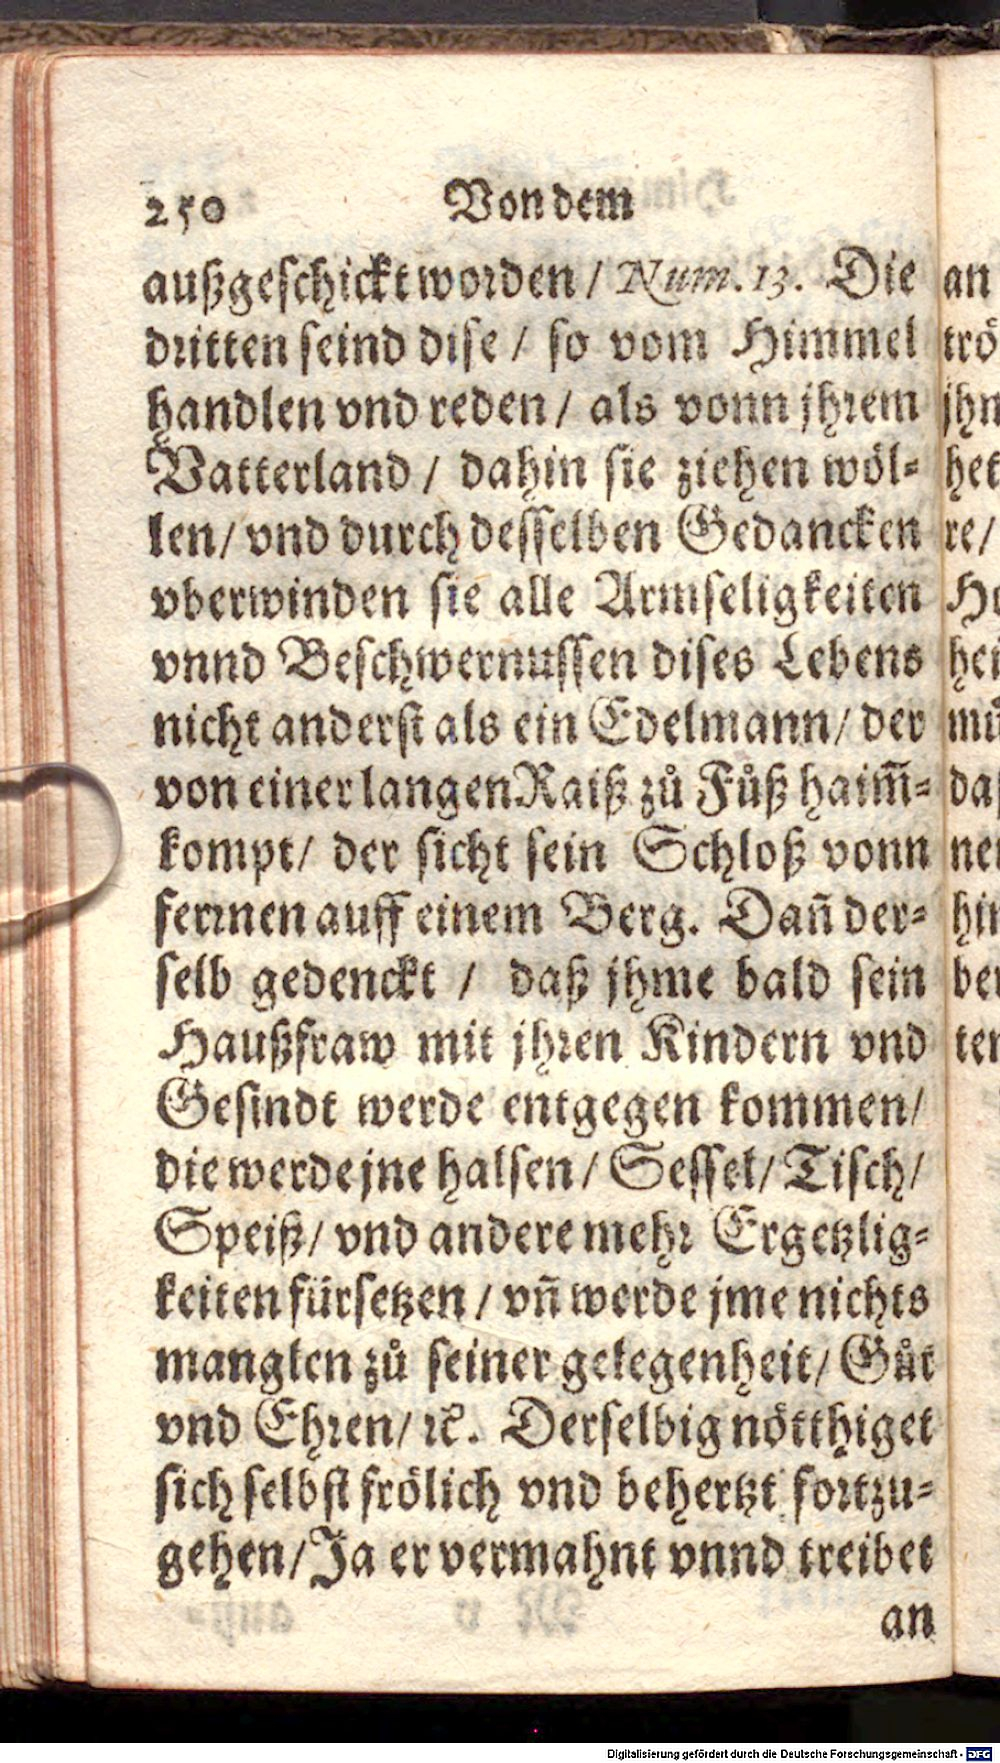 250 Von dem
außgeschickt worden / Num. 13. Die
dritten seind dise / so vom Himmel
handlen vnd reden / als vonn jhrem
Vatterland / dahin sie ziehen wöl-
len / vnd durch desselben Gedancken
vberwinden sie alle Armseligkeiten
vnnd Beschwernussen dises Lebens
nicht anderst als ein Edelmann / der
von einer langen Raiß zů Fůß haim̃-
kompt / der sicht sein Schloß vonn
ferrnen auff einem Berg. Dañ der-
selb gedenckt / daß jhme bald sein
Haußfraw mit jhren Kindern vnd
Gesindt werde entgegen kommen /
die werde jne halsen / Sessel / Tisch /
Speiß / vnd andere mehr Ergetzlig-
keiten fürsetzen / vñ werde jme nichts
manglen zů seiner gelegenheit / Gůt
vnd Ehren / ꝛc. Derselbig nötthiget
sich selbst frölich vnd behertzt fortzu-
gehen / Ja er vermahnt vnnd treibet
an
an
trö
jhn
het
re /
hei
mů
daß
ner
hin
ber
ten
Digitalisierung gefördert durch die Deutsche Forschungsgemeinschaft - DFG